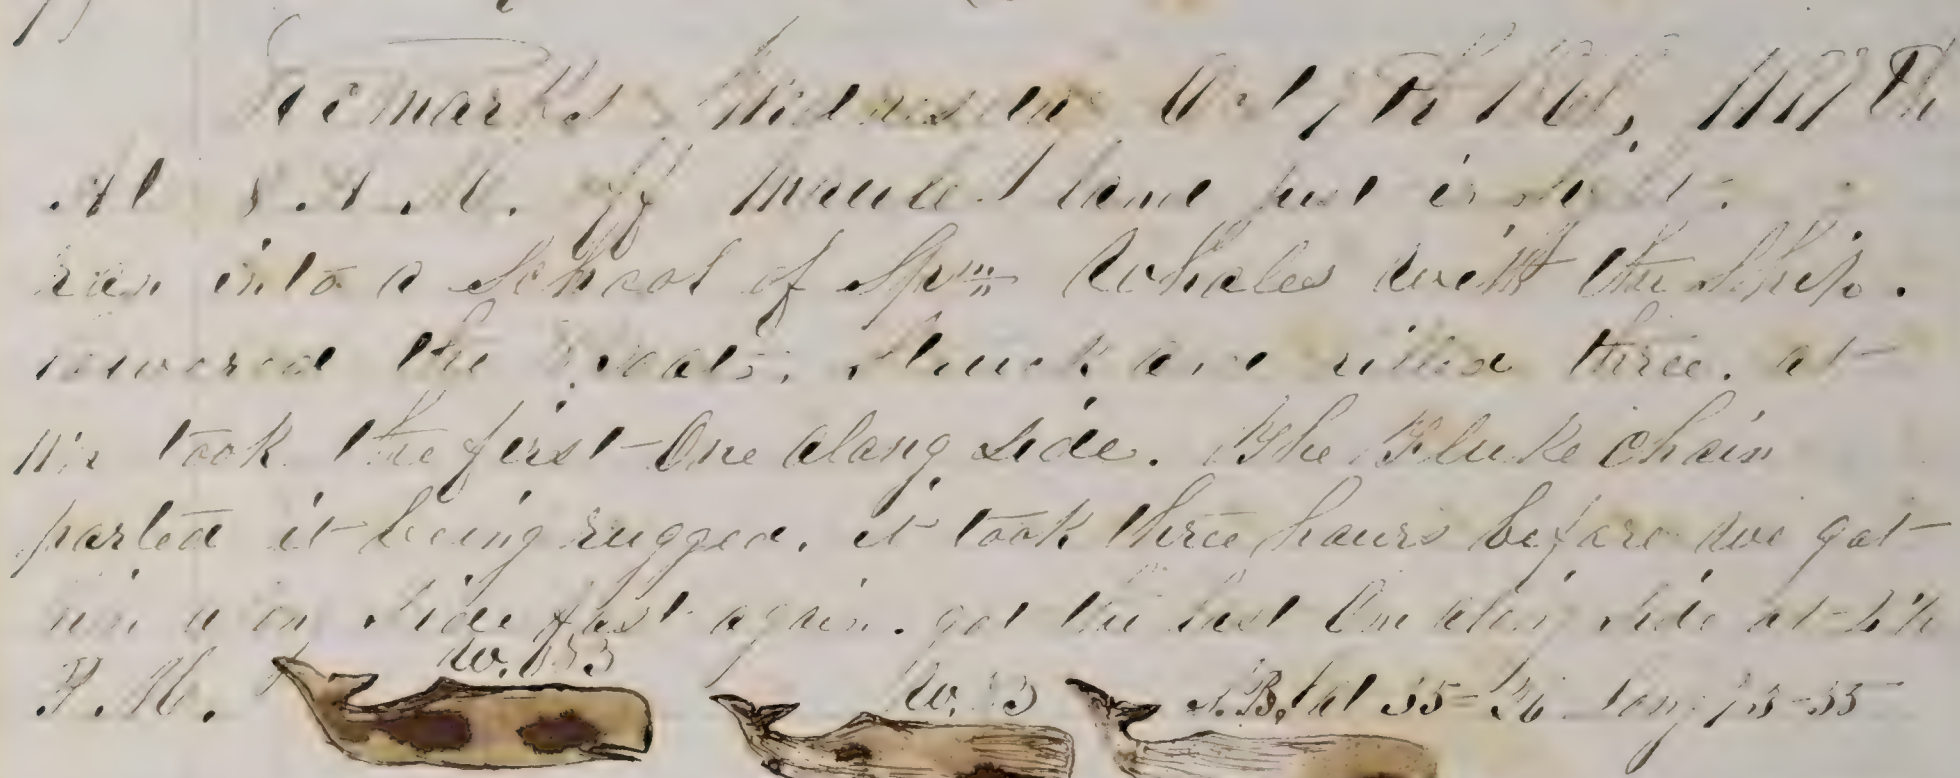 Remarks Wednesday Oct 7th
At A.M. off land just in sight.
ran into a School of Spm Whales with the Ship.
lowered the Boats. Struck and killed three. at
took the first One along side. The Fluke Chain
parted it being rugged. it took three hours before we got
him along Side fast again. got the last One along Side at
P.M. W. 33 W. 33 S.B. Lat 35-26 Long 33-55